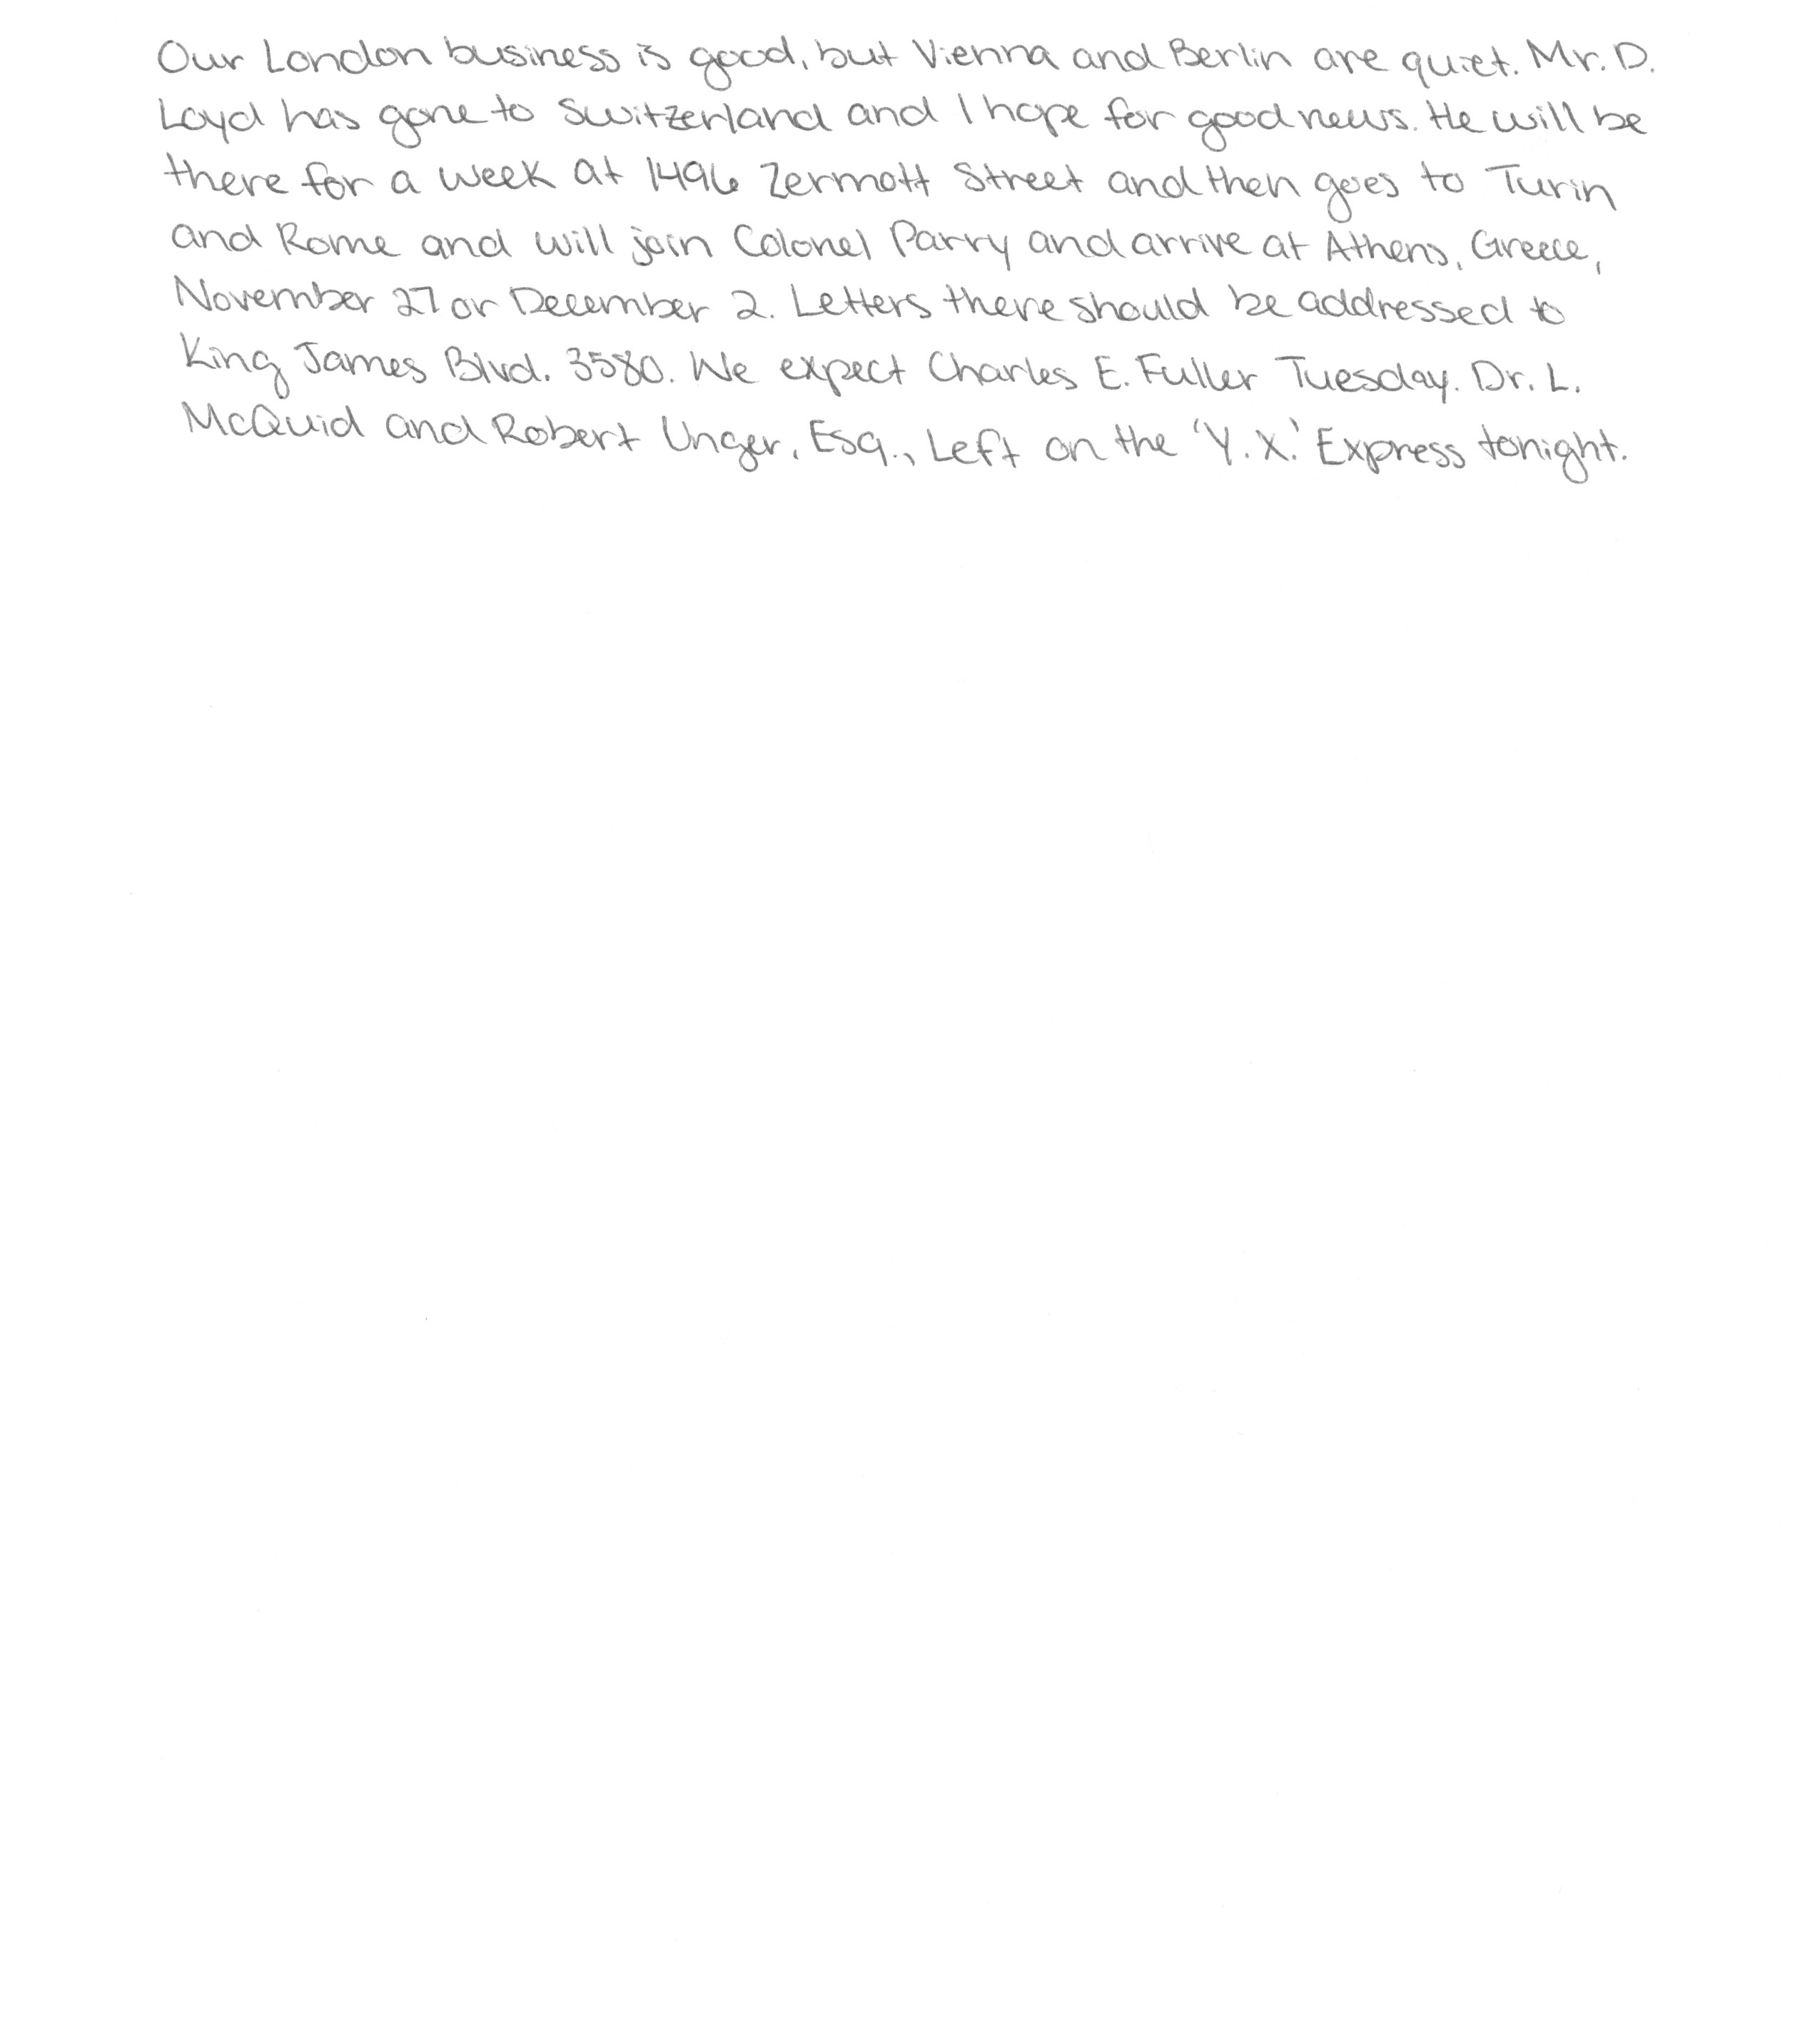 Our London business is good, but Vienna and Berlin are quiet. Mr. D.
Loyd has gone to Switzerland and I hope for good news. He will be
there for a week at 1496 Zermott Street and then goes to Turin
and Rome and will join Colonel Parry and arrive at Athens, Greece,
November 27 or December 2. Letters there should be addressed to
King James Blvd. 3580. We expect Charles E. Fuller Tuesday. Dr. L.
McQuid and Robert Unger, Esq., Left on the 'Y.X.' Express tonight.